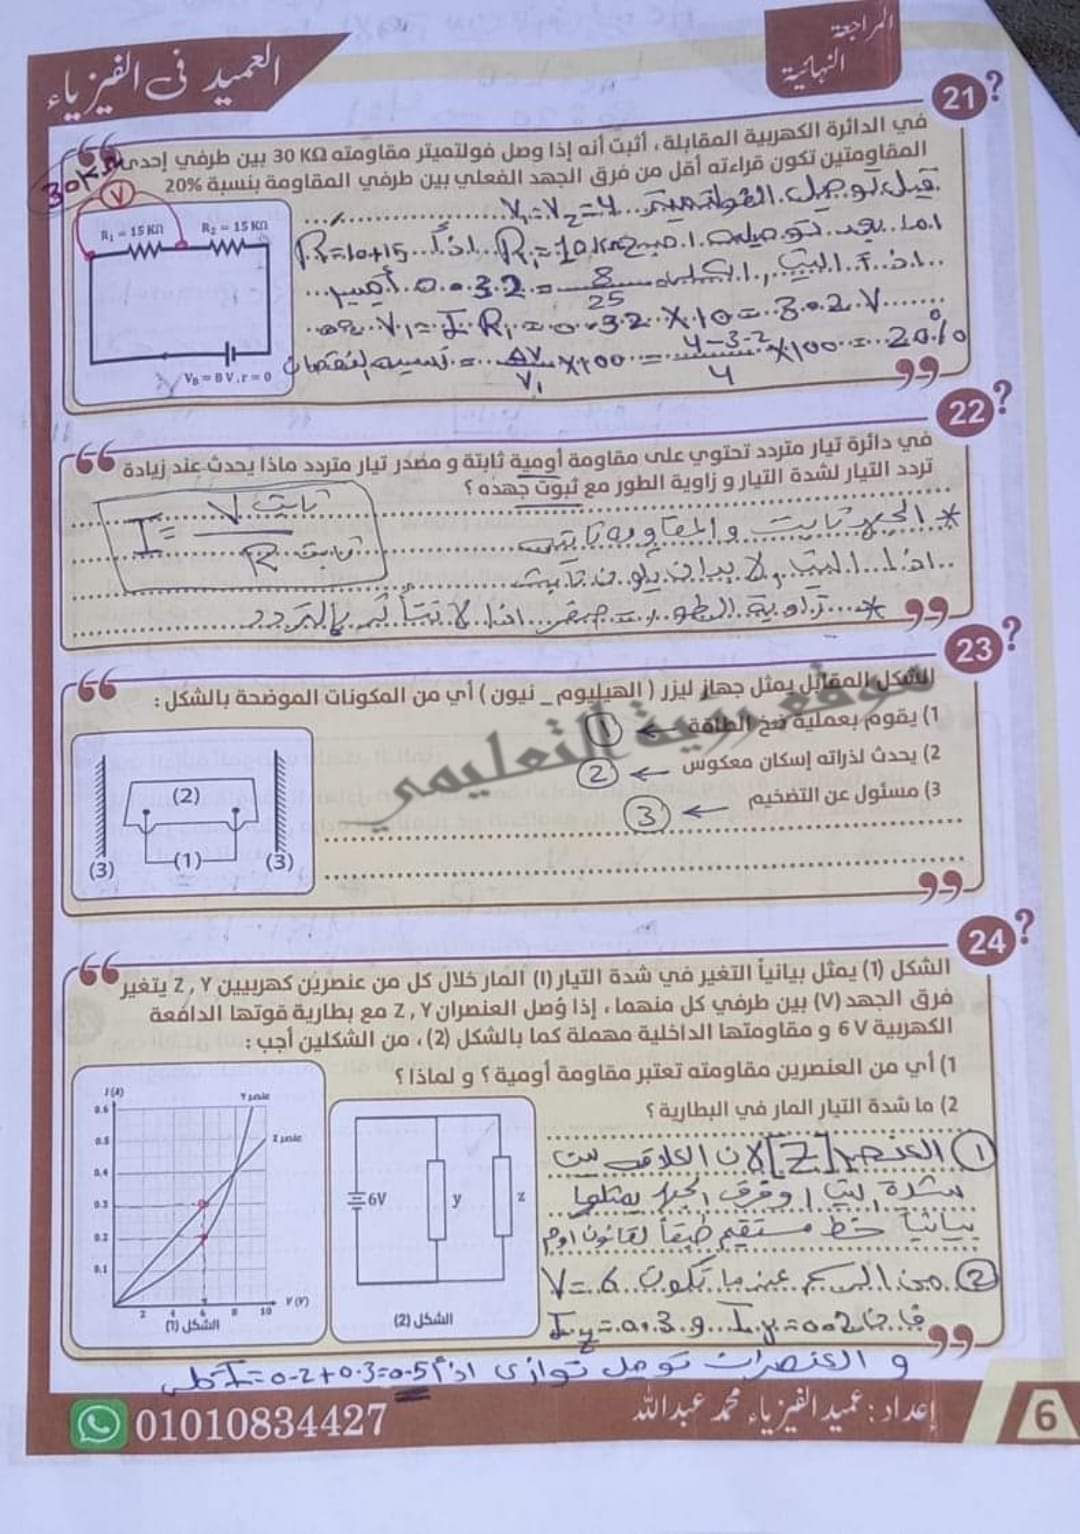 المراجعة
النهائية
العميد في الفيزياء
21
في الدائرة الكهربية المقابلة ، أثبت أنه إذا وصل فولتميتر مقاومته 30 KΩ بين طرفي إحدى
المقاومتين تكون قراءته أقل من فرق الجهد الفعلي بين طرفي المقاومة بنسبة 20%
30K
V
R₁ = 15 KΩ
R₂ = 15 KΩ
V_B = 8 V , r = 0
قبل توصيل الفولتميتر V₁=V₂=4
اما بعد توصيله اصبح R₁=10 KΩ اذاً R=10+15
8/25 = 0.32
V₁=I R₁=0.32×10=3.2 V
نسبة النقصان = ΔV/V₁ ×100 = 4-3.2/4 ×100 = 20%
22
في دائرة تيار متردد تحتوي على مقاومة أومية ثابتة و مصدر تيار متردد ماذا يحدث عند زيادة
تردد التيار لشدة التيار و زاوية الطور مع ثبوت جهده ؟
I = V ثابت / R ثابت
* الجهد ثابت والمقاومة ثابتة
اذا لابد ان يكون ثابت
* زاوية الطور = صفر اذا لا تتأثر بالتردد
23
الشكل المقابل يمثل جهاز ليزر ( الهيليوم _ نيون ) أي من المكونات الموضحة بالشكل :
1) يقوم بعملية ضخ الطاقة ← 1
2) يحدث لذراته إسكان معكوس ← 2
3) مسئول عن التضخيم ← 3
(2)
(3)
(1)
(3)
موقع رؤية التعليمي
24
الشكل (1) يمثل بيانياً التغير في شدة التيار (I) المار خلال كل من عنصرين كهربيين Z , Y يتغير
فرق الجهد (V) بين طرفي كل منهما ، إذا وُصل العنصران Z , Y مع بطارية قوتها الدافعة
الكهربية 6 V و مقاومتها الداخلية مهملة كما بالشكل (2) ، من الشكلين أجب :
1) أي من العنصرين مقاومته تعتبر مقاومة أومية ؟ و لماذا ؟
2) ما شدة التيار المار في البطارية ؟
I (A)
عنصر Y
عنصر Z
0.6
0.5
0.4
0.3
0.2
0.1
2 4 6 8 10
V (V)
الشكل (1)
6V
y
z
الشكل (2)
1 العنصر [Z] لان العلاقة بين
شدة التيار وفرق الجهد يمثلها
بيانياً خط مستقيم طبقاً لقانون اوم
2 من الرسم عندما تكون V=6
فان I_z=0.3 و I_y=0.2
و العنصران توصيل توازى اذاً I كلى = 0.2+0.3=0.5
01010834427
إعداد : عميد الفيزياء محمد عبدالله
6